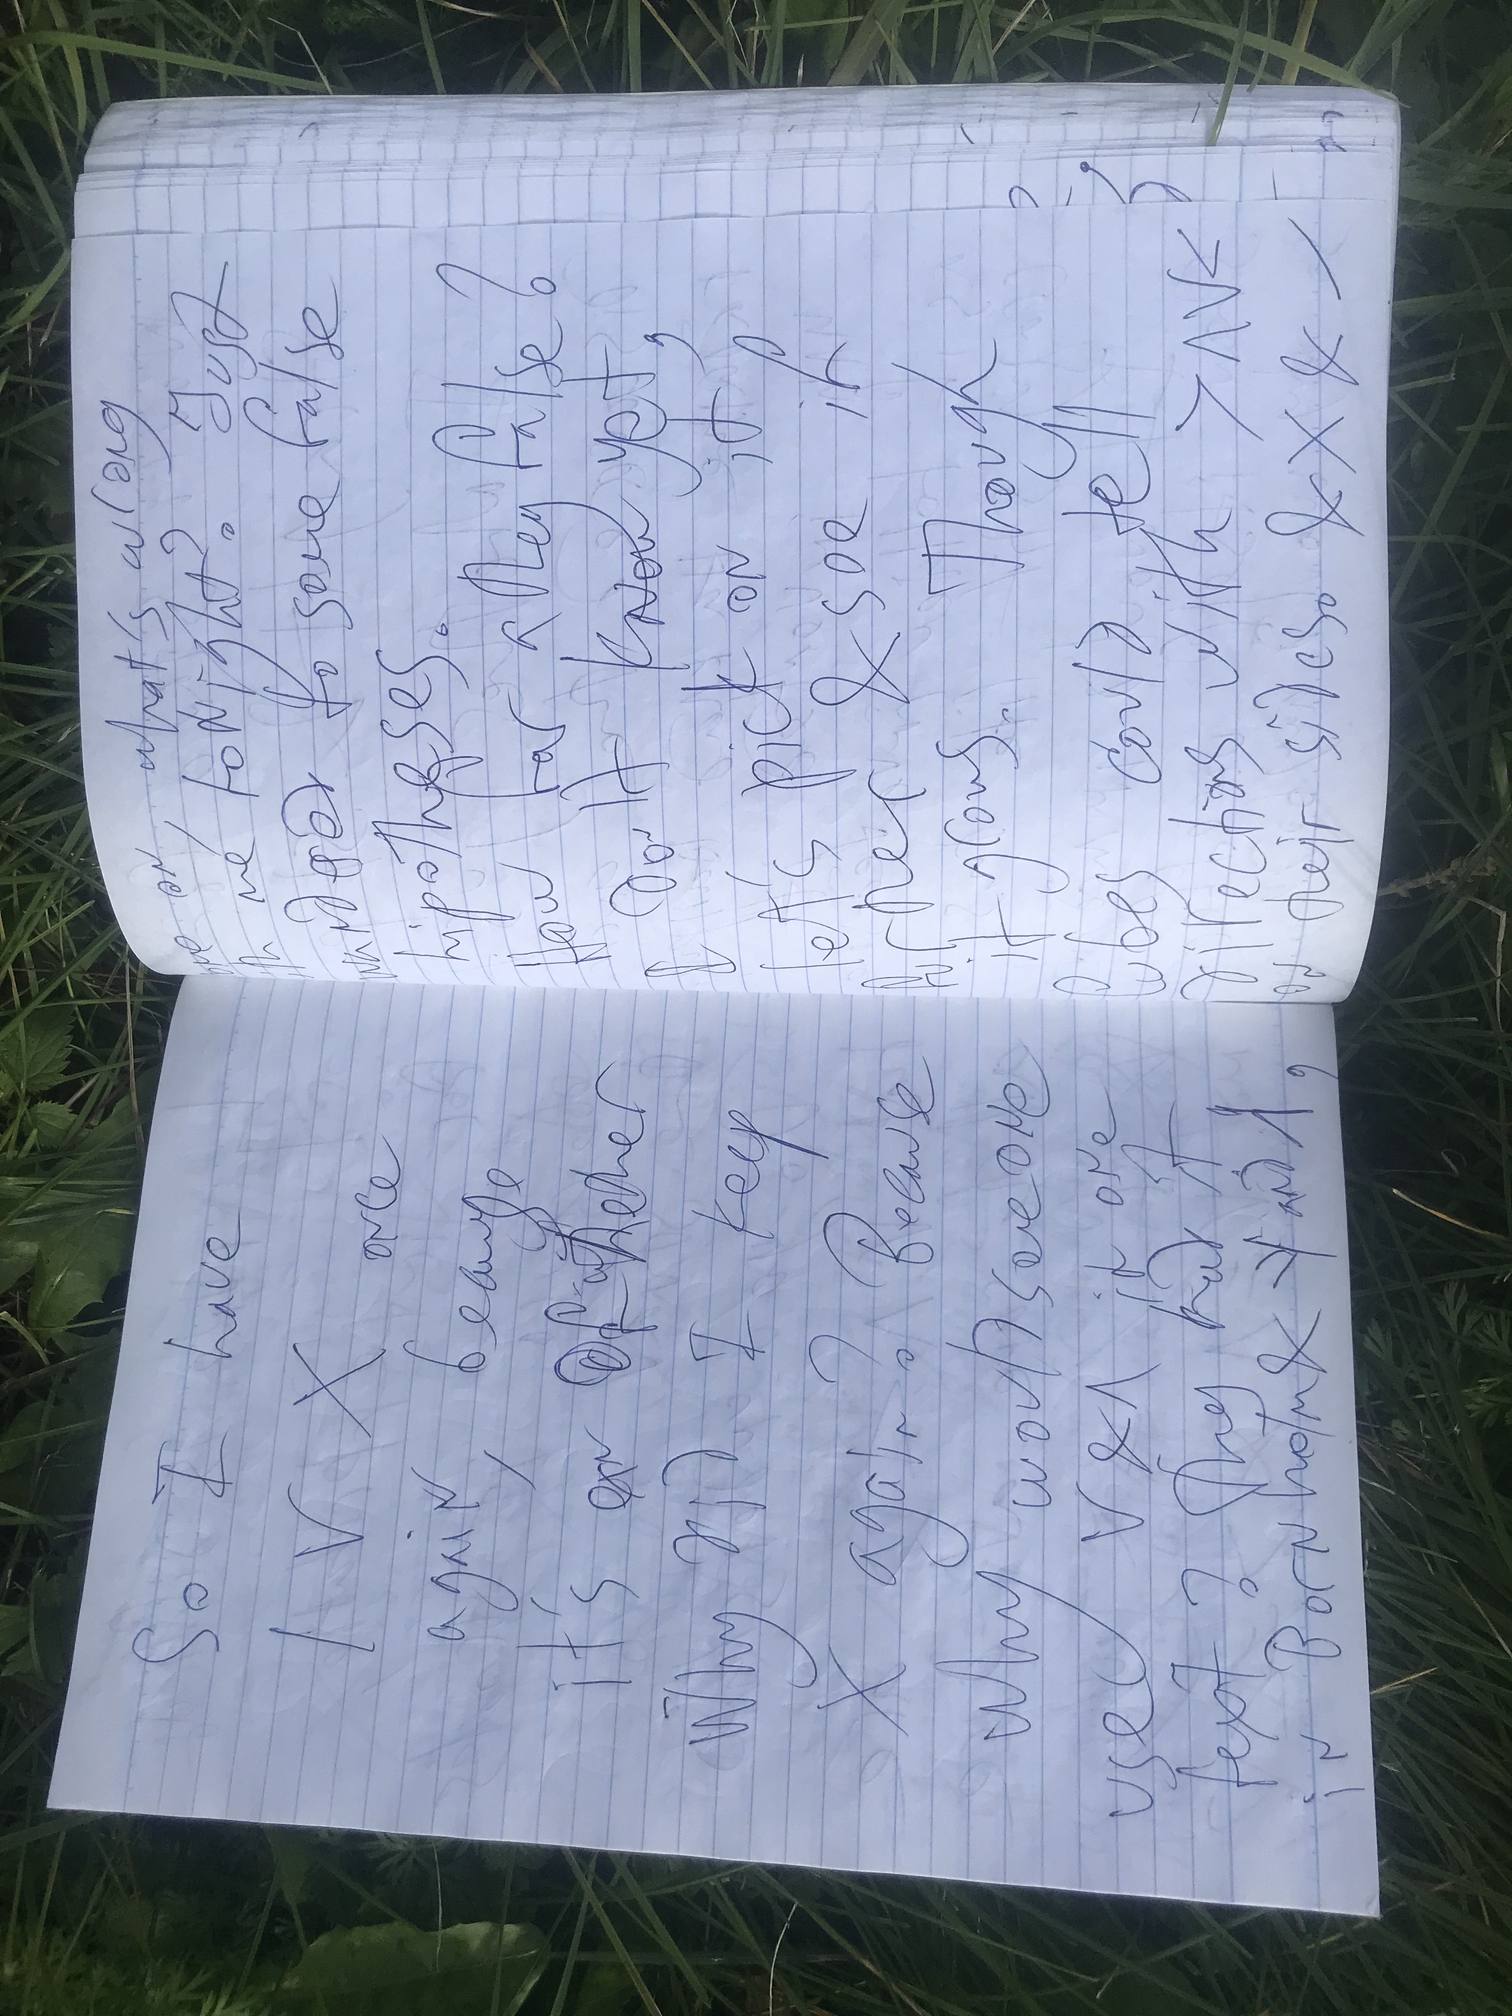 So I have
/ V X
once
again, because
it's on
Why did I keep
X again? Because
Why would someone
use V & Λ if one
text? They had it
in Born hotm & > and 1,
on what's wrong
me tonight? Just
to some false
hipotheses.
How far R They false?
Don't know yet,
let's pick on it &
further & see if
it grows. Though
Rubes could tell
directions with > Λ V <
on their sides & X & /